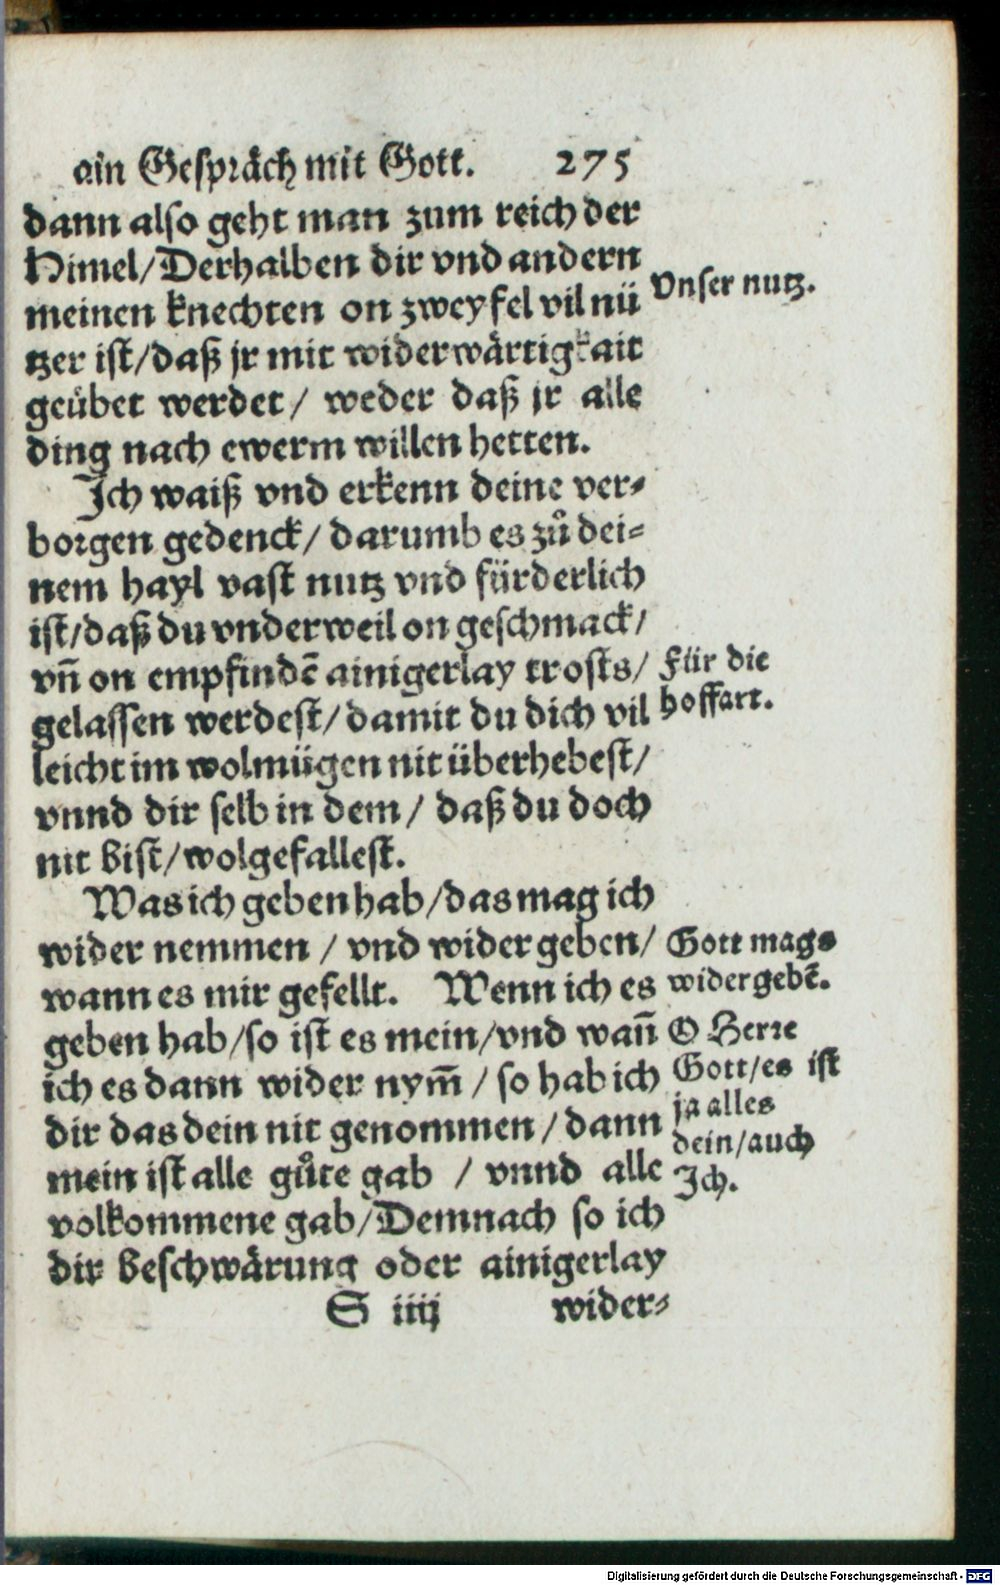 ain Gespräch mit Gott. 275
dann also geht man zum reich der
Himel/Derhalben dir vnd andern
meinen knechten on zweyfel vil nü
tzer ist/daß jr mit widerwärtigkait
geübet werdet/ weder daß jr alle
ding nach ewerm willen hetten.
Vnser nutz.
Ich waiß vnd erkenn deine ver-
borgen gedenck/ darumb es zů dei-
nem hayl vast nutz vnd fürderlich
ist/daß du vnderweil on geschmack/
vñ on empfindē ainigerlay trosts/
gelassen werdest/damit du dich vil
leicht im wolmügen nit überhebest/
vnnd dir selb in dem/ daß du doch
nit bist/wolgefallest.
Für die
hoffart.
Was ich geben hab/das mag ich
wider nemmen / vnd wider geben/
wann es mir gefellt. Wenn ich es
geben hab/so ist es mein/vnd wañ
ich es dann wider nym̃ / so hab ich
dir das dein nit genommen/dann
mein ist alle gůte gab / vnnd alle
volkommene gab/Demnach so ich
dir beschwärung oder ainigerlay
Gott mags
wider gebē.
O Herre
Gott/es ist
ja alles
dein/auch
Ich.
S iiij wider-
Digitalisierung gefördert durch die Deutsche Forschungsgemeinschaft - DFG